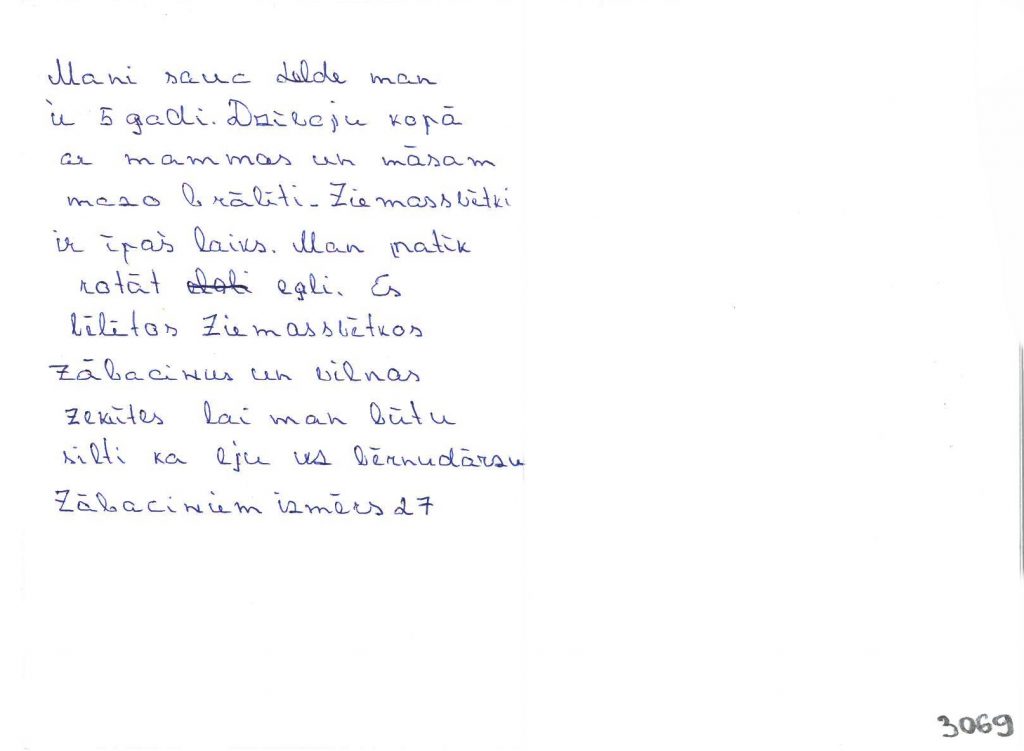 Mani sauc Elde man
ir 5 gadi. Dzīvoju kopā
ar mammas un māsam
mazo brālīti. Ziemassvētki
ir īpaš laiks. Man patīk
rotāt egli. Es
vēlētos Ziemassvētkos
zābaciņus un vilnas
zeķītes lai man būtu
silti ka eju uz bērnudārzu
Zābaciņiem izmērs 27
3069